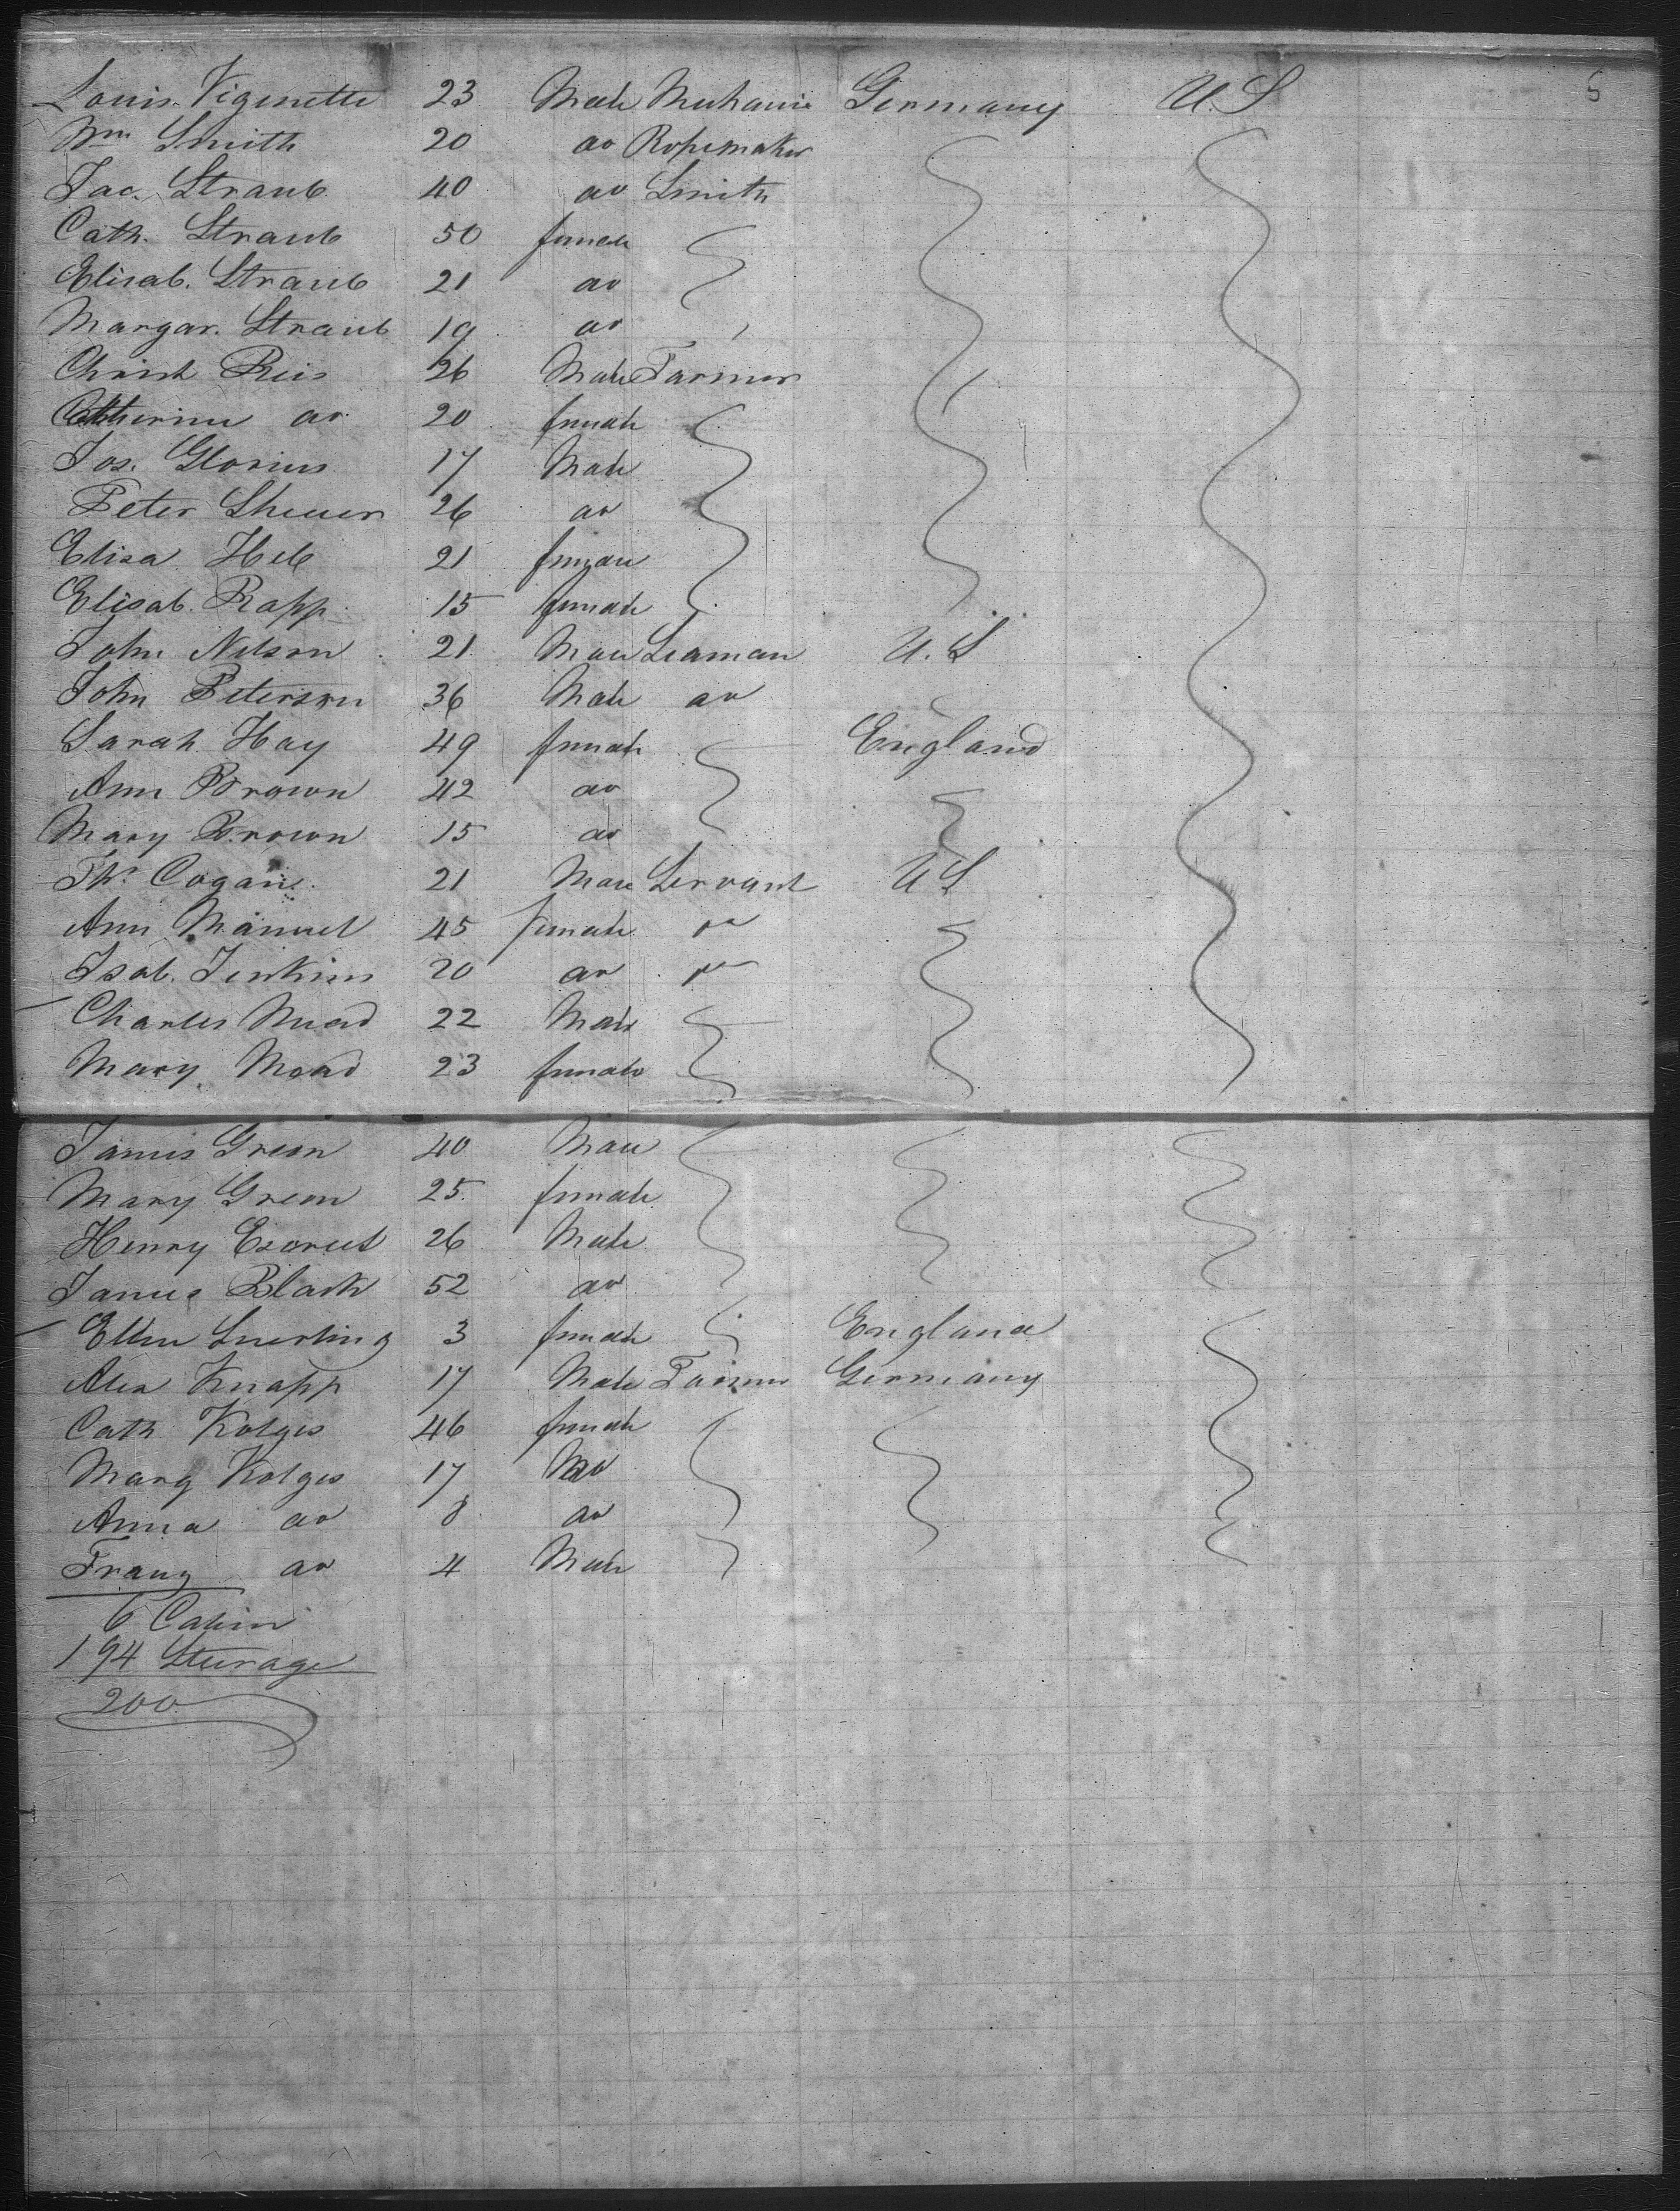 5
Louis. Vigenette 23 Male Mechanic Germany U.S
Wm Smith 20 do Ropemaker
Jac. Straub 40 do Smith
Cath. Straub 50 female
Elisab. Straub 21 do
Margar. Straub 19 do
Christ Reis 26 Male Farmer
Catherine do 20 female
Jos. Glorius 17 Male
Peter Sheuer 26 do
Elisa Heb 21 female
Elisab. Rapp 15 female
John Nelson 21 Male Seaman U.S
John Peterson 36 Male do
Sarah Hay 49 female England
Ann Brown 42 do
Mary Brown 15 do
Ths Cogan 21 Male Servant US
Ann Manuel 45 female do
Isab. Jenkins 20 do do
Charles Mead 22 Male
Mary Mead 23 female
James Green 40 Male
Mary Green 25 female
Henry 26 Male
James Black 52 do
Ellen 3 female England
Alex Knapp 17 Male Farmer Germany
Cath Kolges 46 female
Marg Kolges 17 do
Anna do 8 do
Franz do 4 Male
6 Cabin
194 Steerage
200